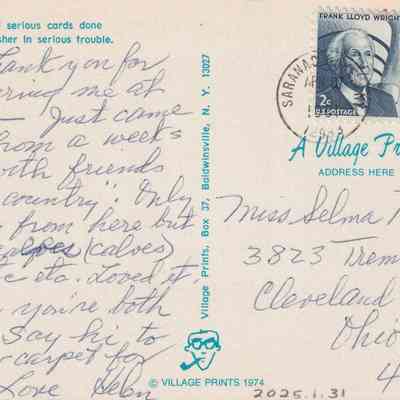 serious cards done
sher in serious trouble.
Thank you for
me at
– Just came
from a weeks
with friends
country". Only
from here but
(calves)
etc. Loved it.
you're both
Say hi to
carpet for
Love Helen
Village Prints, Box 37, Baldwinsville, N. Y. 13027
© VILLAGE PRINTS 1974
FRANK LLOYD WRIGHT
2c
U.S. POSTAGE
SARANA
A Village Pr
ADDRESS HERE
Miss Selma
3823 Trem
Cleveland
Ohio
4
2025.1.31